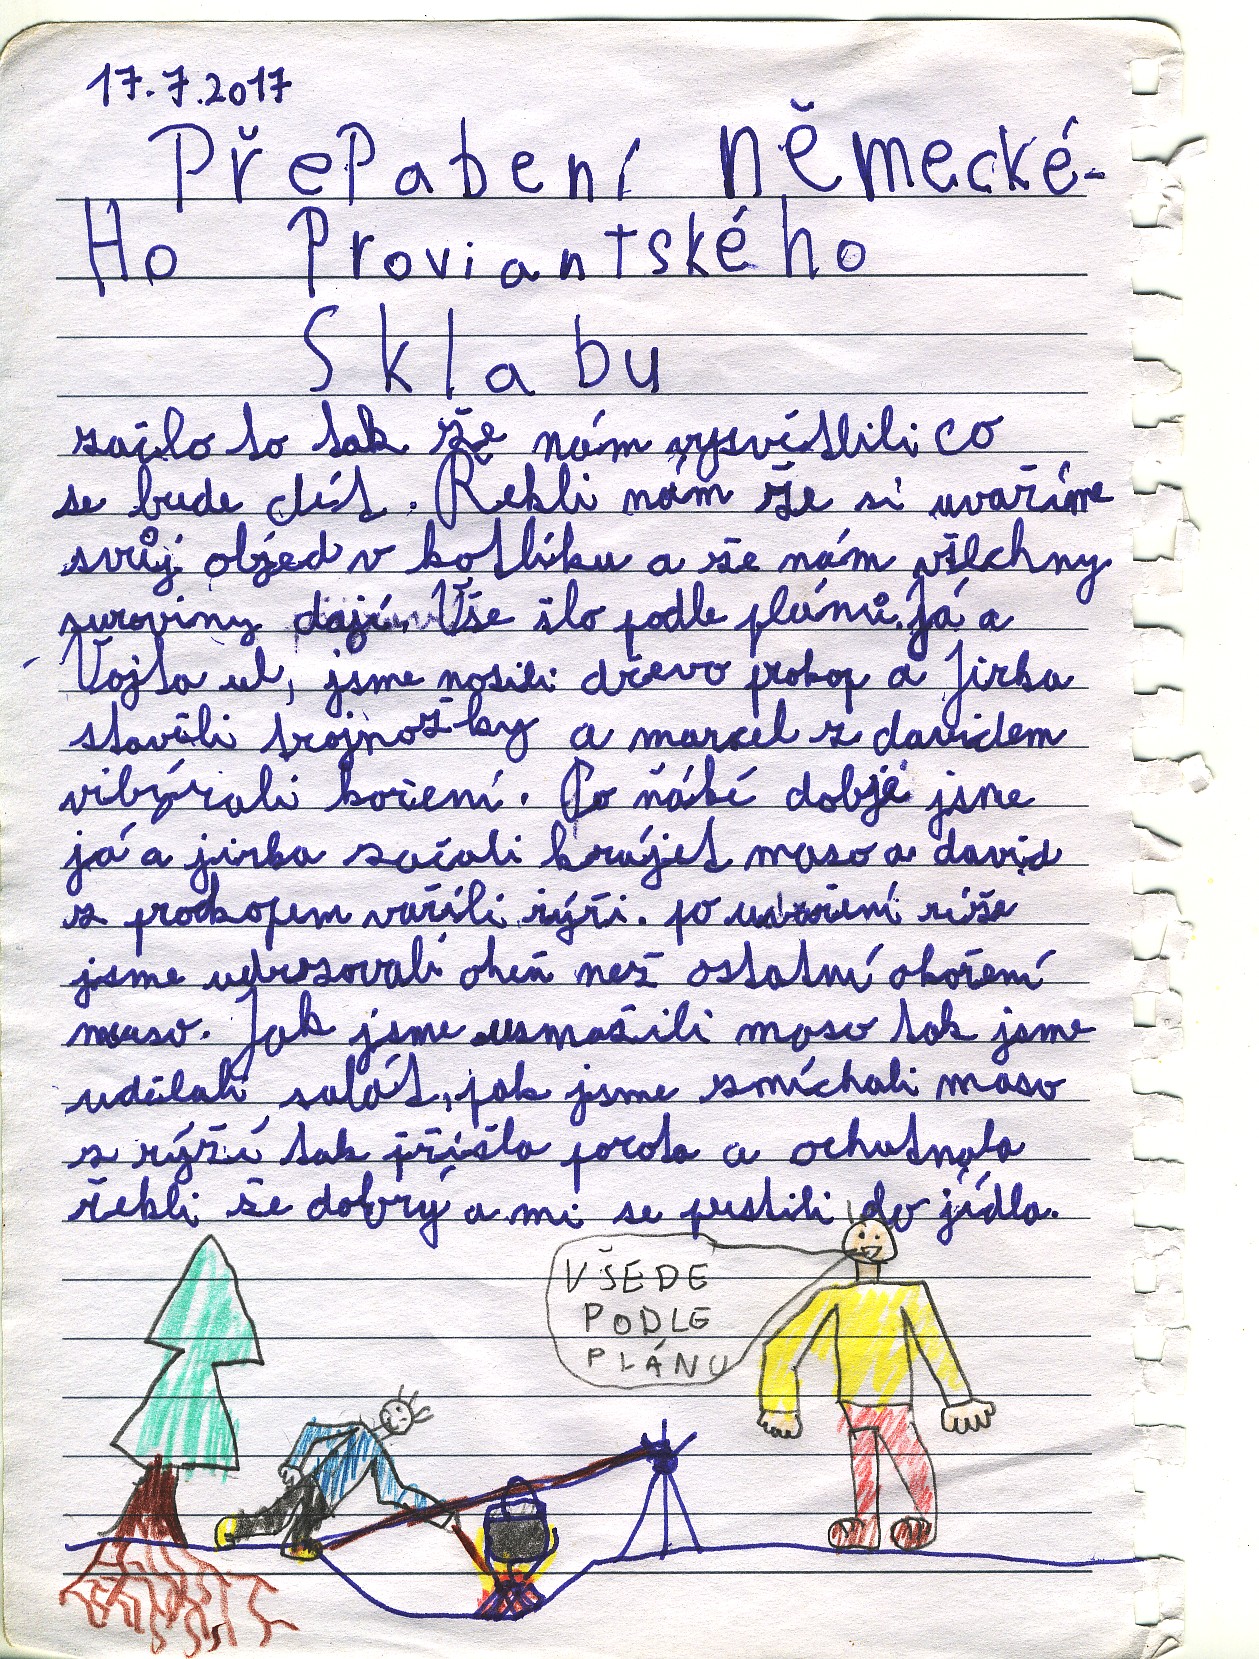 17.7.2017
PřePabení německé-
Ho Proviantského
Skladu
začlo to tak že nám vysvětlili co
se bude dít. Řekli nám že si uvaříme
svůj objed v kotlíku a že nám všechny
suroviny dají. Vše šlo podle plánů. Já a
Vojta ul, jsme nosili dřevo prokop a Jirka
stavěli trojnožky a marcel z davidem
vibýrali koření. Po ňáké dobje jsme
já a jirka začali krájet maso a david
z prokopem vařili rýži. po uvaření ríže
jsme udrzovali oheň než ostatní okoření
maso. Jak jsme usmažili maso tak jsme
udělali salát, jak jsme smíchali maso
s rýží tak přišla porota a ochutnala
řekli že dobrý a mi se pustili do jídla.
VŠEDE
PODLE
PLÁNU